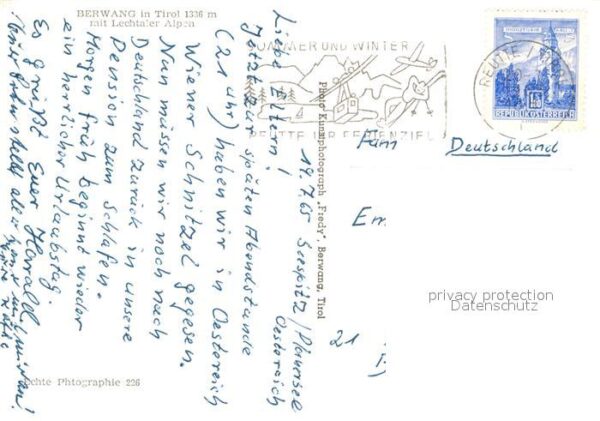 BERWANG in Tirol 1336 m
mit Lechtaler Alpen
19.7.65 Seespitz / Plansee
Österreich
Liebe Eltern!
Jetzt zur späten Abendstunde
(21 Uhr) haben wir in Oestereich
Wiener Schnitzel gegesen.
Nun müssen wir noch nach
Deutschland zurück in unsere
Pension zum Schlafen.
Morgen früh beginnt wieder
ein herrlicher Urlaubstag.
Es grüßt Euer Harald
Echte Phtographie 226
Photo Kunstphotograph „Fredy“, Berwang, Tirol
SOMMER UND WINTER
REUTTE IHR FERIENZIEL
REUTTE
REPUBLIK ÖSTERREICH
Fam
Deutschland
Em
21
privacy protection
Datenschutz